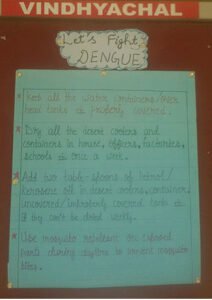 VINDHYACHAL
Let's Fight
DENGUE
* Keep all the water containers/over
head tanks properly covered.
* Dry all the desert coolers and
containers in house, offices, factories,
schools once a week.
* Add two table-spoons of Petrol/
Kerosene oil in desert coolers, container
uncovered/improperly covered tanks
if they can't be dried weekly.
* Use mosquito repellent on exposed
parts during daytime to prevent mosquito
bites.